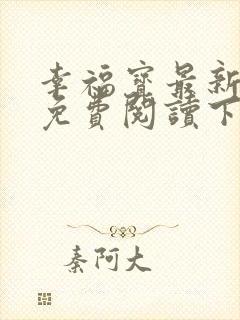 幸福寶最新
免費閱讀下
秦阿大